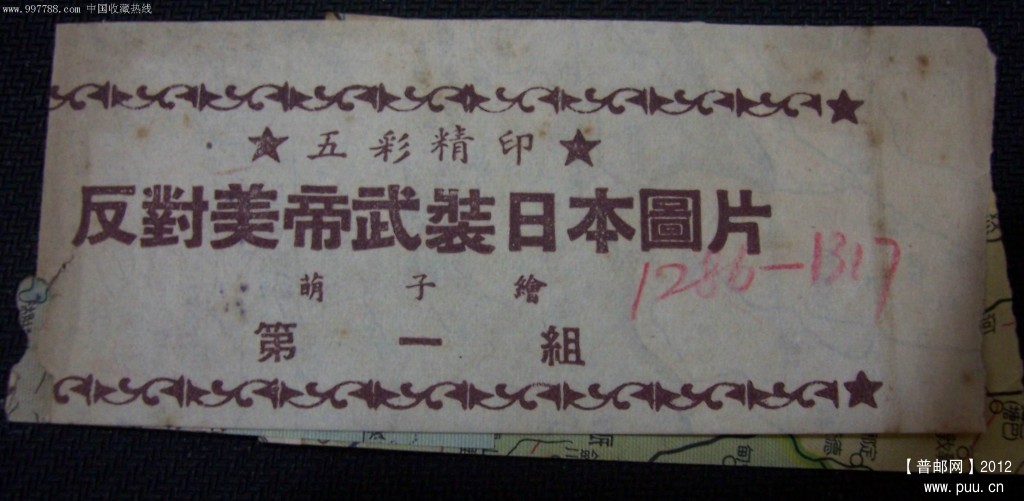 www.997788.com 中国收藏热线
五彩精印
反對美帝武裝日本圖片
萌子繪
1286-1317
第一組
【普邮网】2012
www.puu.cn